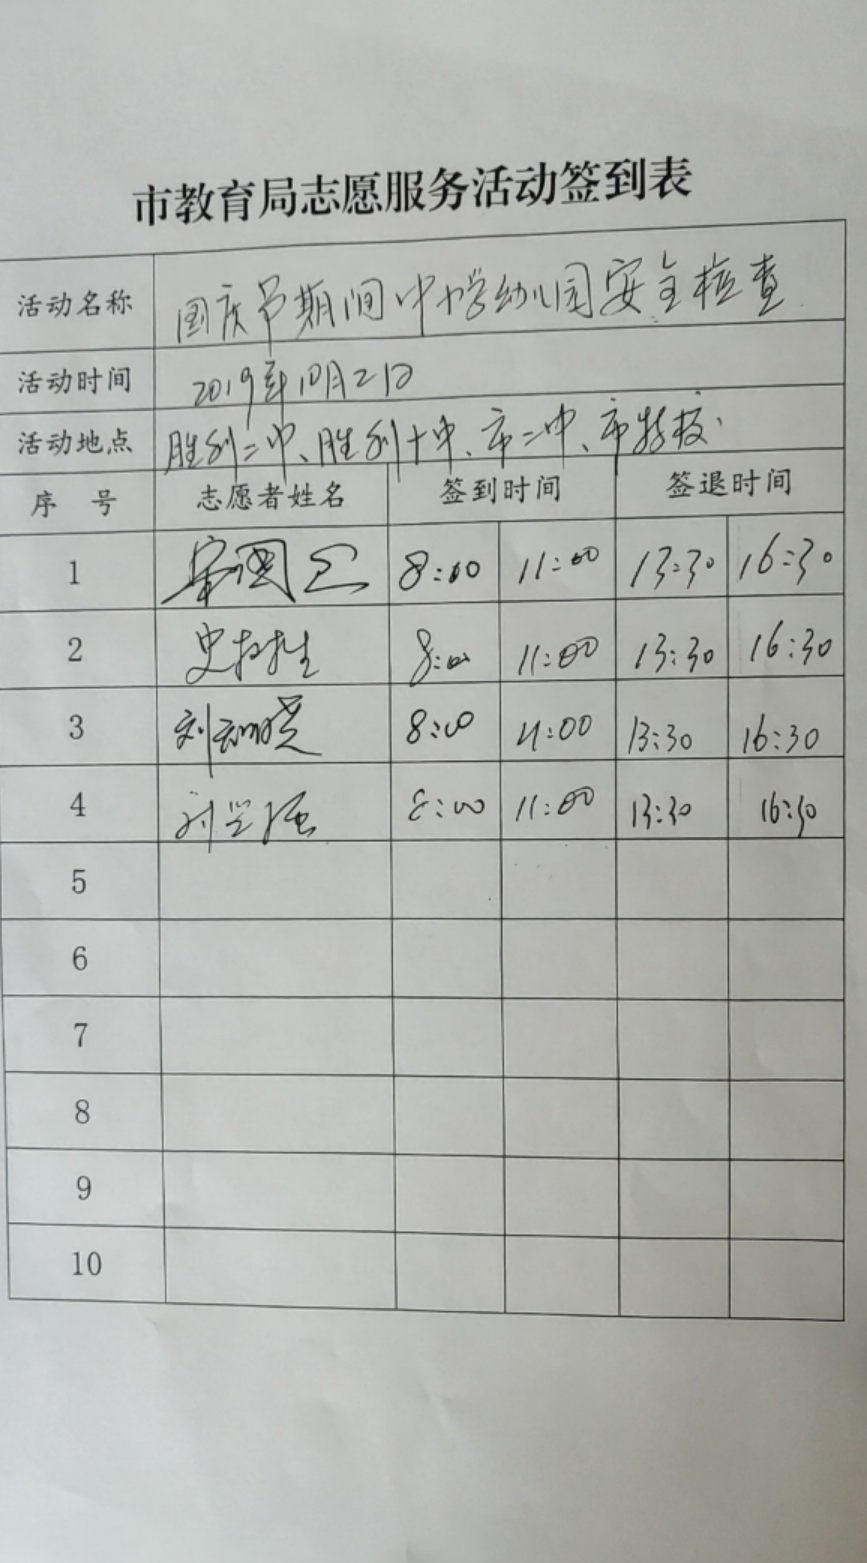 市教育局志愿服务活动签到表
活动名称 国庆节期间中小学幼儿园安全检查
活动时间 2019年10月2日
活动地点 胜利二中、胜利十中、市二中、市特校
序 号 志愿者姓名 签到时间 签退时间
1 8:00 11:00 13:30 16:30
2 8:00 11:00 13:30 16:30
3 刘 8:00 11:00 13:30 16:30
4 8:00 11:00 13:30 16:30
5
6
7
8
9
10